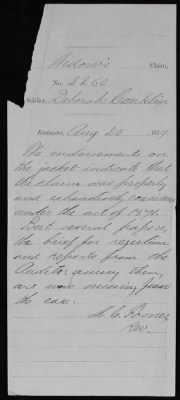 Widow's Claim,
No. 2260
Soldier, Deborah Conklin
Reviewer, Aug 20
The endorsements on
the jacket indicate that
the claim was properly
and exhaustively considered
under the act of 1871.
But several papers,
the brief for rejection
and reports from the
Auditor among them,
are now missing from
the case.
Rev.